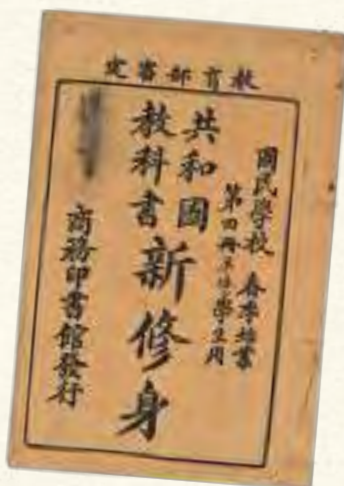 教育部審定
國民學校 春季始業
第四冊 學生用
共和國
教科書新修身
商務印書館發行